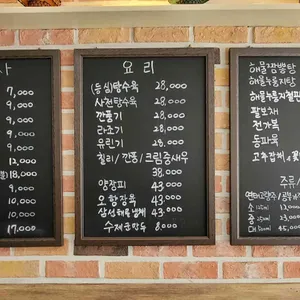 사
7,000
7,000
9,000
9,000
9,000
12,000
18,000
9,000
9,000
10,000
17,000
요리
(등심)탕수육 28,000
사천탕수육 28,000
깐풍기 28,000
라조기 28,000
유린기 28,000
칠리/깐풍/크림중새우
38,000
양장피 43,000
오향장육 43,000
삼선해물냉채 43,000
수제군만두 8,000
해물짬뽕탕
해물누룽지탕
해물누룽지철판
팔보채
전가복
동파육
고추잡채
주류/
연태고량주/
소 125ml 13,000
중 250ml 23,000
대 500ml 45,000